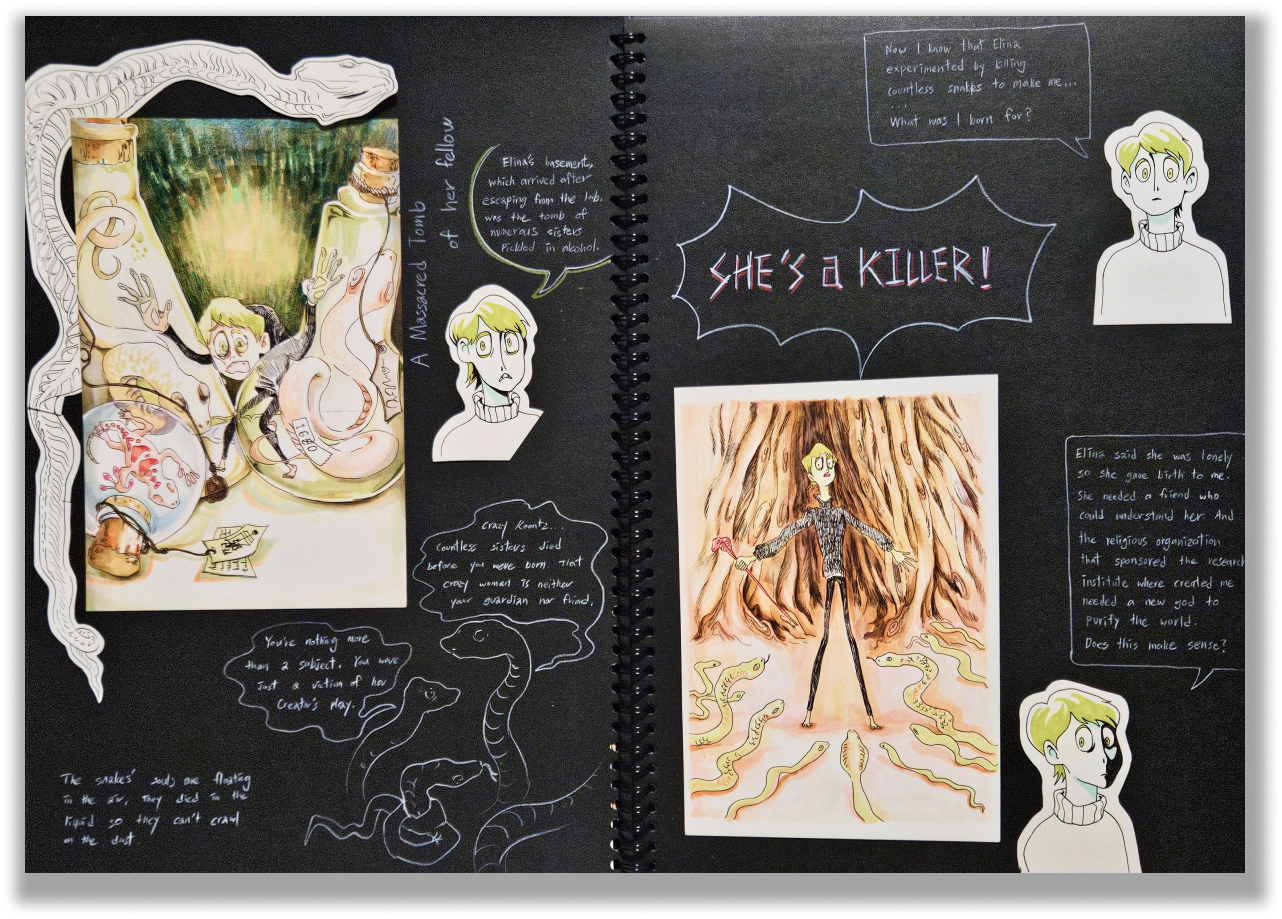 A Massacred Tomb
of her fellow
Elina's basement,
which arrived after
escaping from the lab,
was the tomb of
numerous sisters
Pickled in alcohol.
1680
Crazy Koontz...
Countless sisters died
before you were born. That
crazy woman is neither
your guardian nor friend.
You're nothing more
than a subject. You were
just a victim of her
Creator's Play.
The snakes' souls are floating
in the air, They died in the
liquid so they can't crawl
on the dust.
Now I know that Elina
experimented by killing
countless snakes to make me...
...
What was I born for?
SHE'S a KILLER!
Elina said she was lonely
so she gave birth to me.
She needed a friend who
could understand her. And
the religious organization
that sponsored the research
institute where created me
needed a new god to
Purify the world.
Does this make sense?